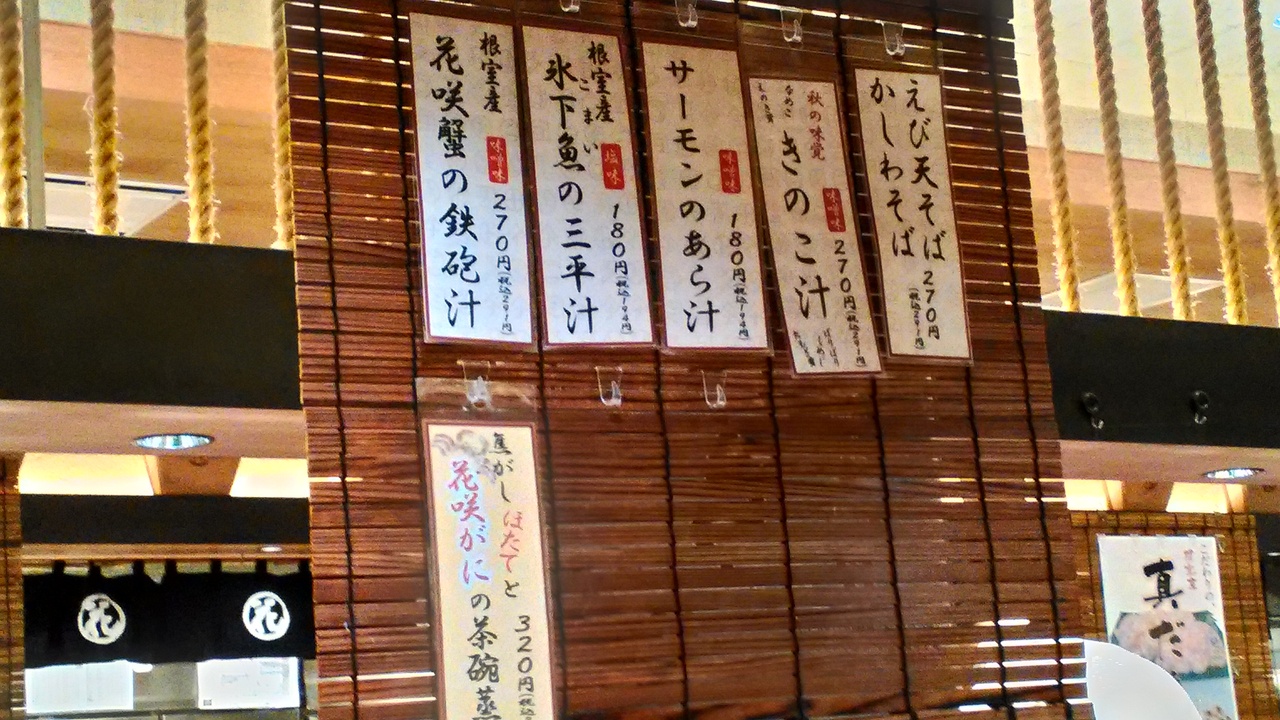 えび天そば
かしわそば
270円(税込291円)
秋の味覚
味噌味
なめこ
えのき茸
きのこ汁
270円(税込291円)
しめじ
サーモンのあら汁
味噌味
180円(税込194円)
根室産
こまい
氷下魚の三平汁
塩味
180円(税込194円)
根室産
花咲蟹の鉄砲汁
味噌味
270円(税込291円)
焦がしほたてと
花咲がにの茶碗蒸
320円(税込
花
花
こだわりの
真だ